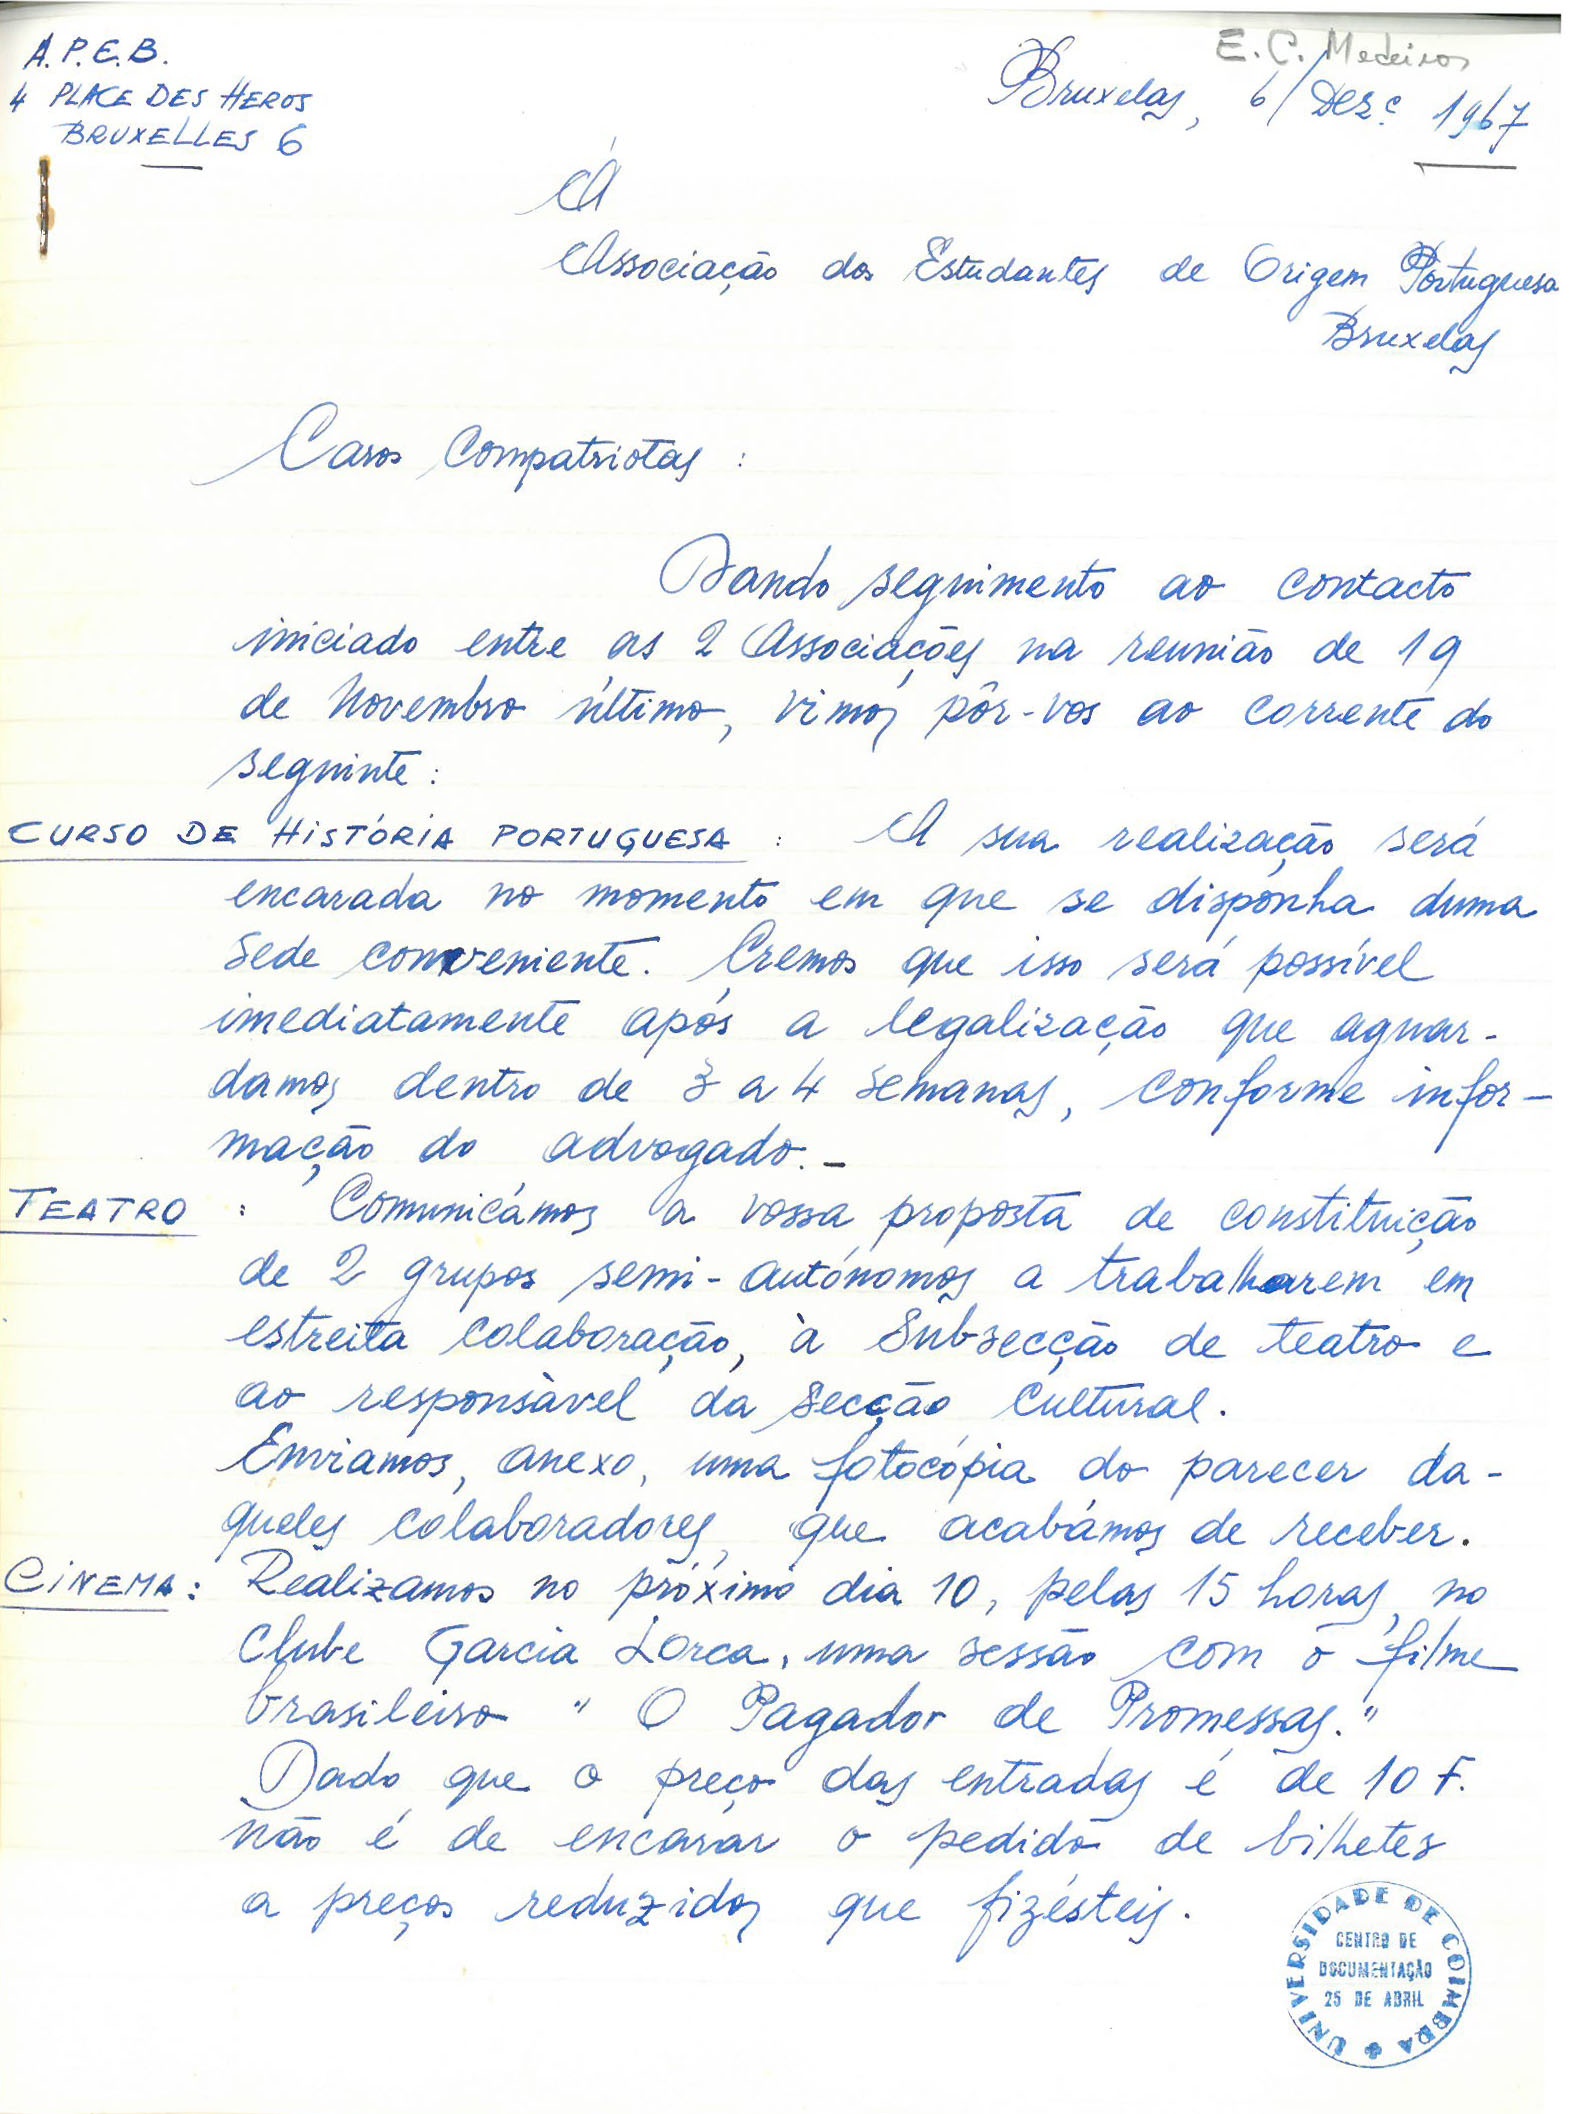 E. C. Medeiros
A.P.E.B.
4 PLACE DES HEROS
BRUXELLES 6
Bruxelas, 6/Dezº 1967
À
Associação dos Estudantes de Origem Portuguesa
Bruxelas
Caros Compatriotas :
Dando seguimento ao contacto
iniciado entre as 2 Associações na reunião de 19
de Novembro último, vimos pôr-vos ao corrente do
seguinte :
CURSO DE HISTÓRIA PORTUGUESA : A sua realização será
encarada no momento em que se disponha duma
sede conveniente. Cremos que isso será possível
imediatamente após a legalização que aguar-
damos dentro de 3 a 4 semanas, conforme infor-
mação do advogado. -
TEATRO : Comunicámos a vossa proposta de constituição
de 2 grupos semi-autónomos a trabalharem em
estreita colaboração, à Subsecção de teatro e
ao responsável da Secção Cultural.
Enviamos, anexo, uma fotocópia do parecer da-
queles colaboradores, que acabámos de receber.
CINEMA : Realizamos no próximo dia 10, pelas 15 horas, no
Clube Garcia Lorca, uma sessão com o filme
brasileiro " O Pagador de Promessas."
Dado que o preço das entradas é de 10 F.
não é de encarar o pedido de bilhetes
a preços reduzidos que fizésteis.
UNIVERSIDADE DE COIMBRA
CENTRO DE
DOCUMENTAÇÃO
25 DE ABRIL